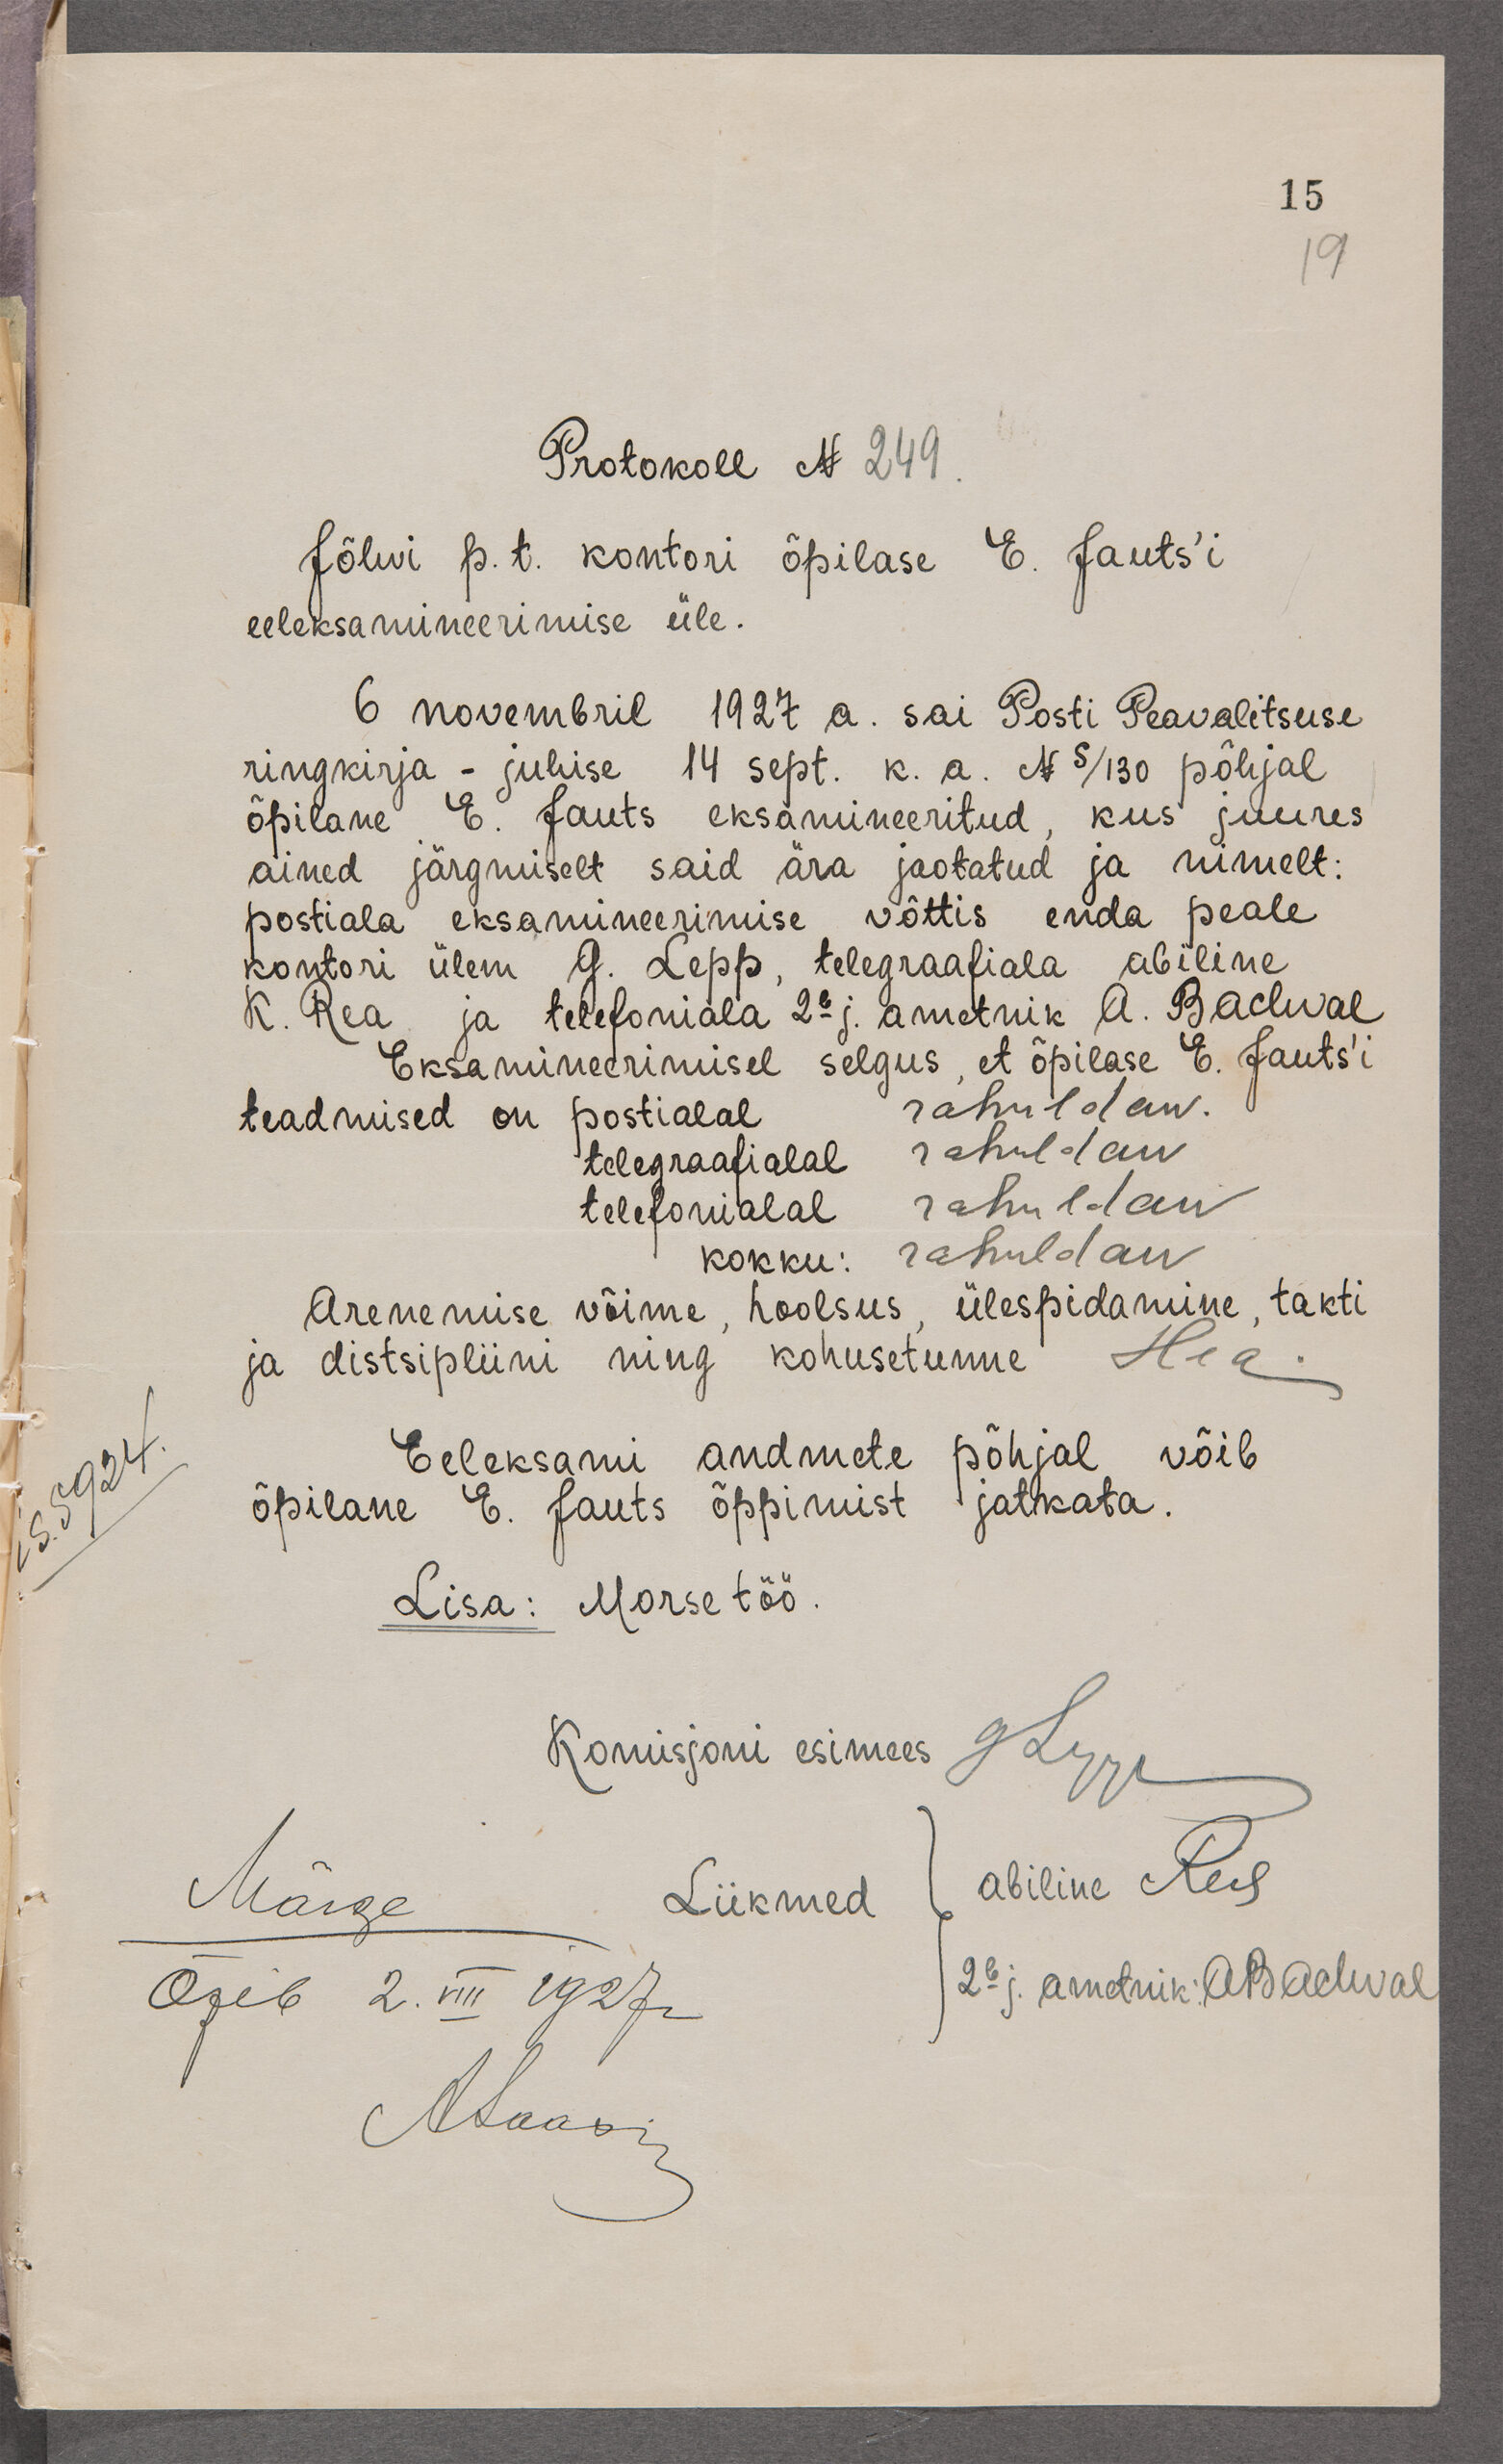 15
19
Protokoll № 249.
Jõhvi p. t. kontori õpilase E. Jauts'i
eeleksamineerimise üle.
6 novembril 1927 a. sai Posti Peavalitsuse
ringkirja - juhise 14 sept. k. a. № S/130 põhjal
õpilane E. Jauts eksamineeritud, kus juures
ained järgmiselt said ära jaotatud ja nimelt:
postiala eksamineerimise võttis enda peale
kontori ülem G. Lepp, telegraafiala abiline
K. Rea ja telefoniala 2e j. ametnik A. Bachval
Eksamineerimisel selgus, et õpilase E. Jauts'i
teadmised on postialal rahuldav.
telegraafialal rahuldav
telefonialal rahuldav
kokku: rahuldav
Arenemise võime, hoolsus, ülespidamine, takti
ja distsipliini ning kohusetunne Hea.
Eeleksami andmete põhjal võib
õpilane E. Jauts õppimist jatkata.
is. 5924.
Lisa: Morse töö.
Komisjoni esimees G Lepp
Liikmed abiline Rea
2e j. ametnik: A Bachval
Märge
Õpib 2. VIII 1927